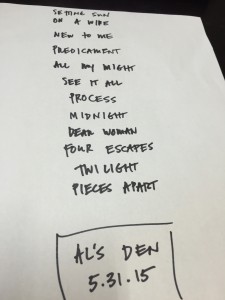 SETTING SUN
ON A WIRE
NEW TO ME
PREDICAMENT
ALL MY MIGHT
SEE IT ALL
PROCESS
MIDNIGHT
DEAR WOMAN
FOUR ESCAPES
TWILIGHT
PIECES APART
AL'S DEN
5.31.15